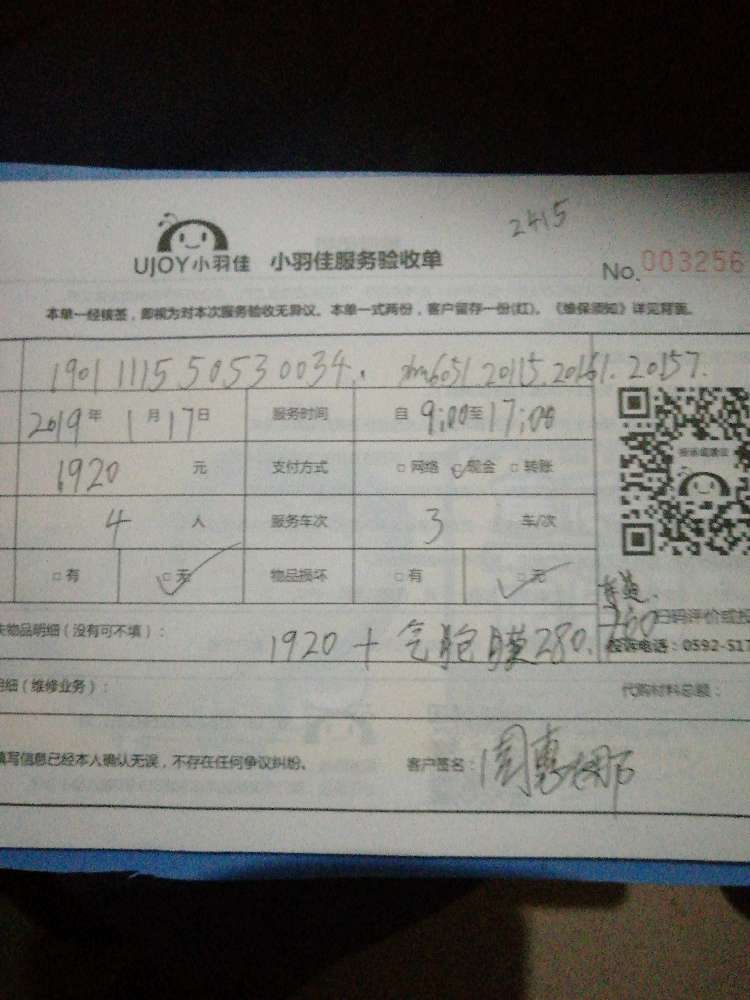 2415
UJOY小羽佳 小羽佳服务验收单
No. 003256
本单一经核签，即视为对本次服务验收无异议。本单一式两份，客户留存一份(红)。《维保须知》详见背面。
1901111550530034. xm6051.20115.20161.20157.
2019年1月17日 服务时间 自9:00至17:00
1920元 支付方式 □网络 ☑现金 □转账
4人 服务车次 3车/次
□有 ☑无 物品损坏 □有 ☑无
失物品明细（没有可不填）：
1920 + 气胞膜280.
扫码评价或投
投诉电话：0592-517
明细（维修业务）：
代购材料总额：
填写信息已经本人确认无误，不存在任何争议纠纷。 客户签名：周惠娜